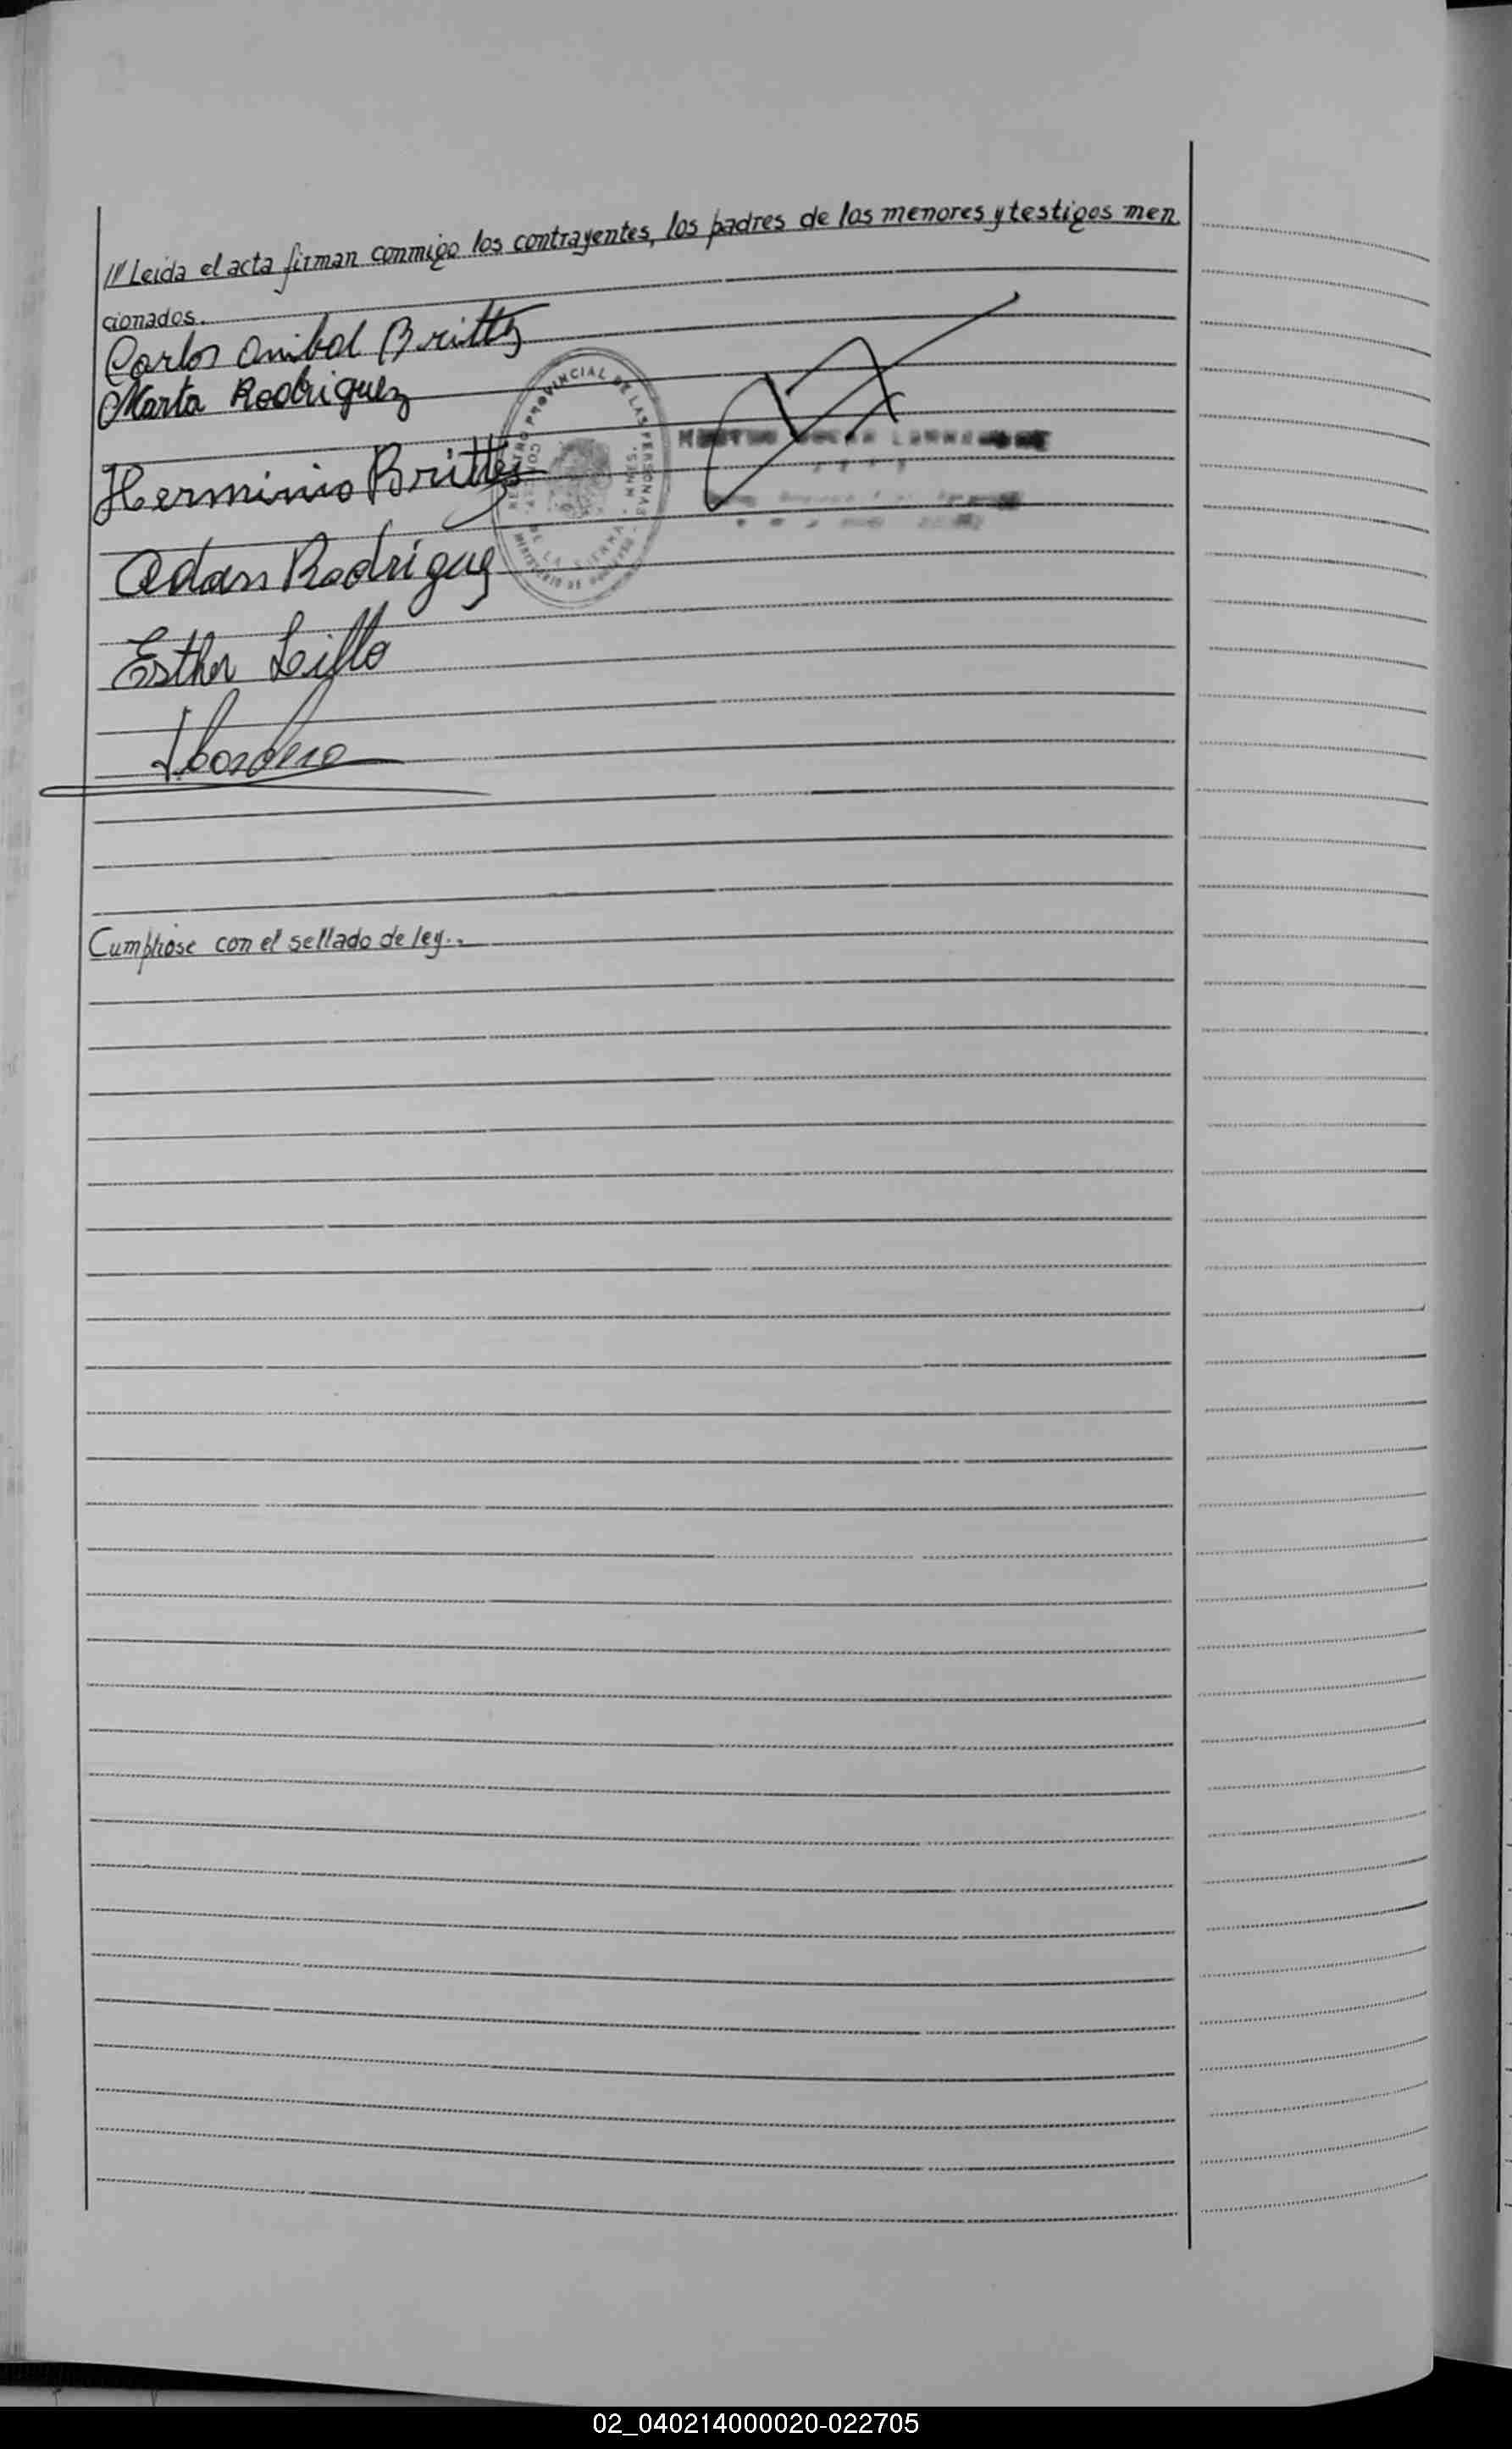 /// Leida el acta firman conmigo los contrayentes, los padres de los menores y testigos men
cionados.
Carlos Anibal Brittez
Marta Rodriguez
Herminio Brittez
Adan Rodriguez
Esther Leillo
REGISTRO PROVINCIAL DE LAS PERSONAS
DE LA SIERRA
MINISTERIO DE GOBIERNO
Cumpliose con el sellado de ley..
02_040214000020-022705